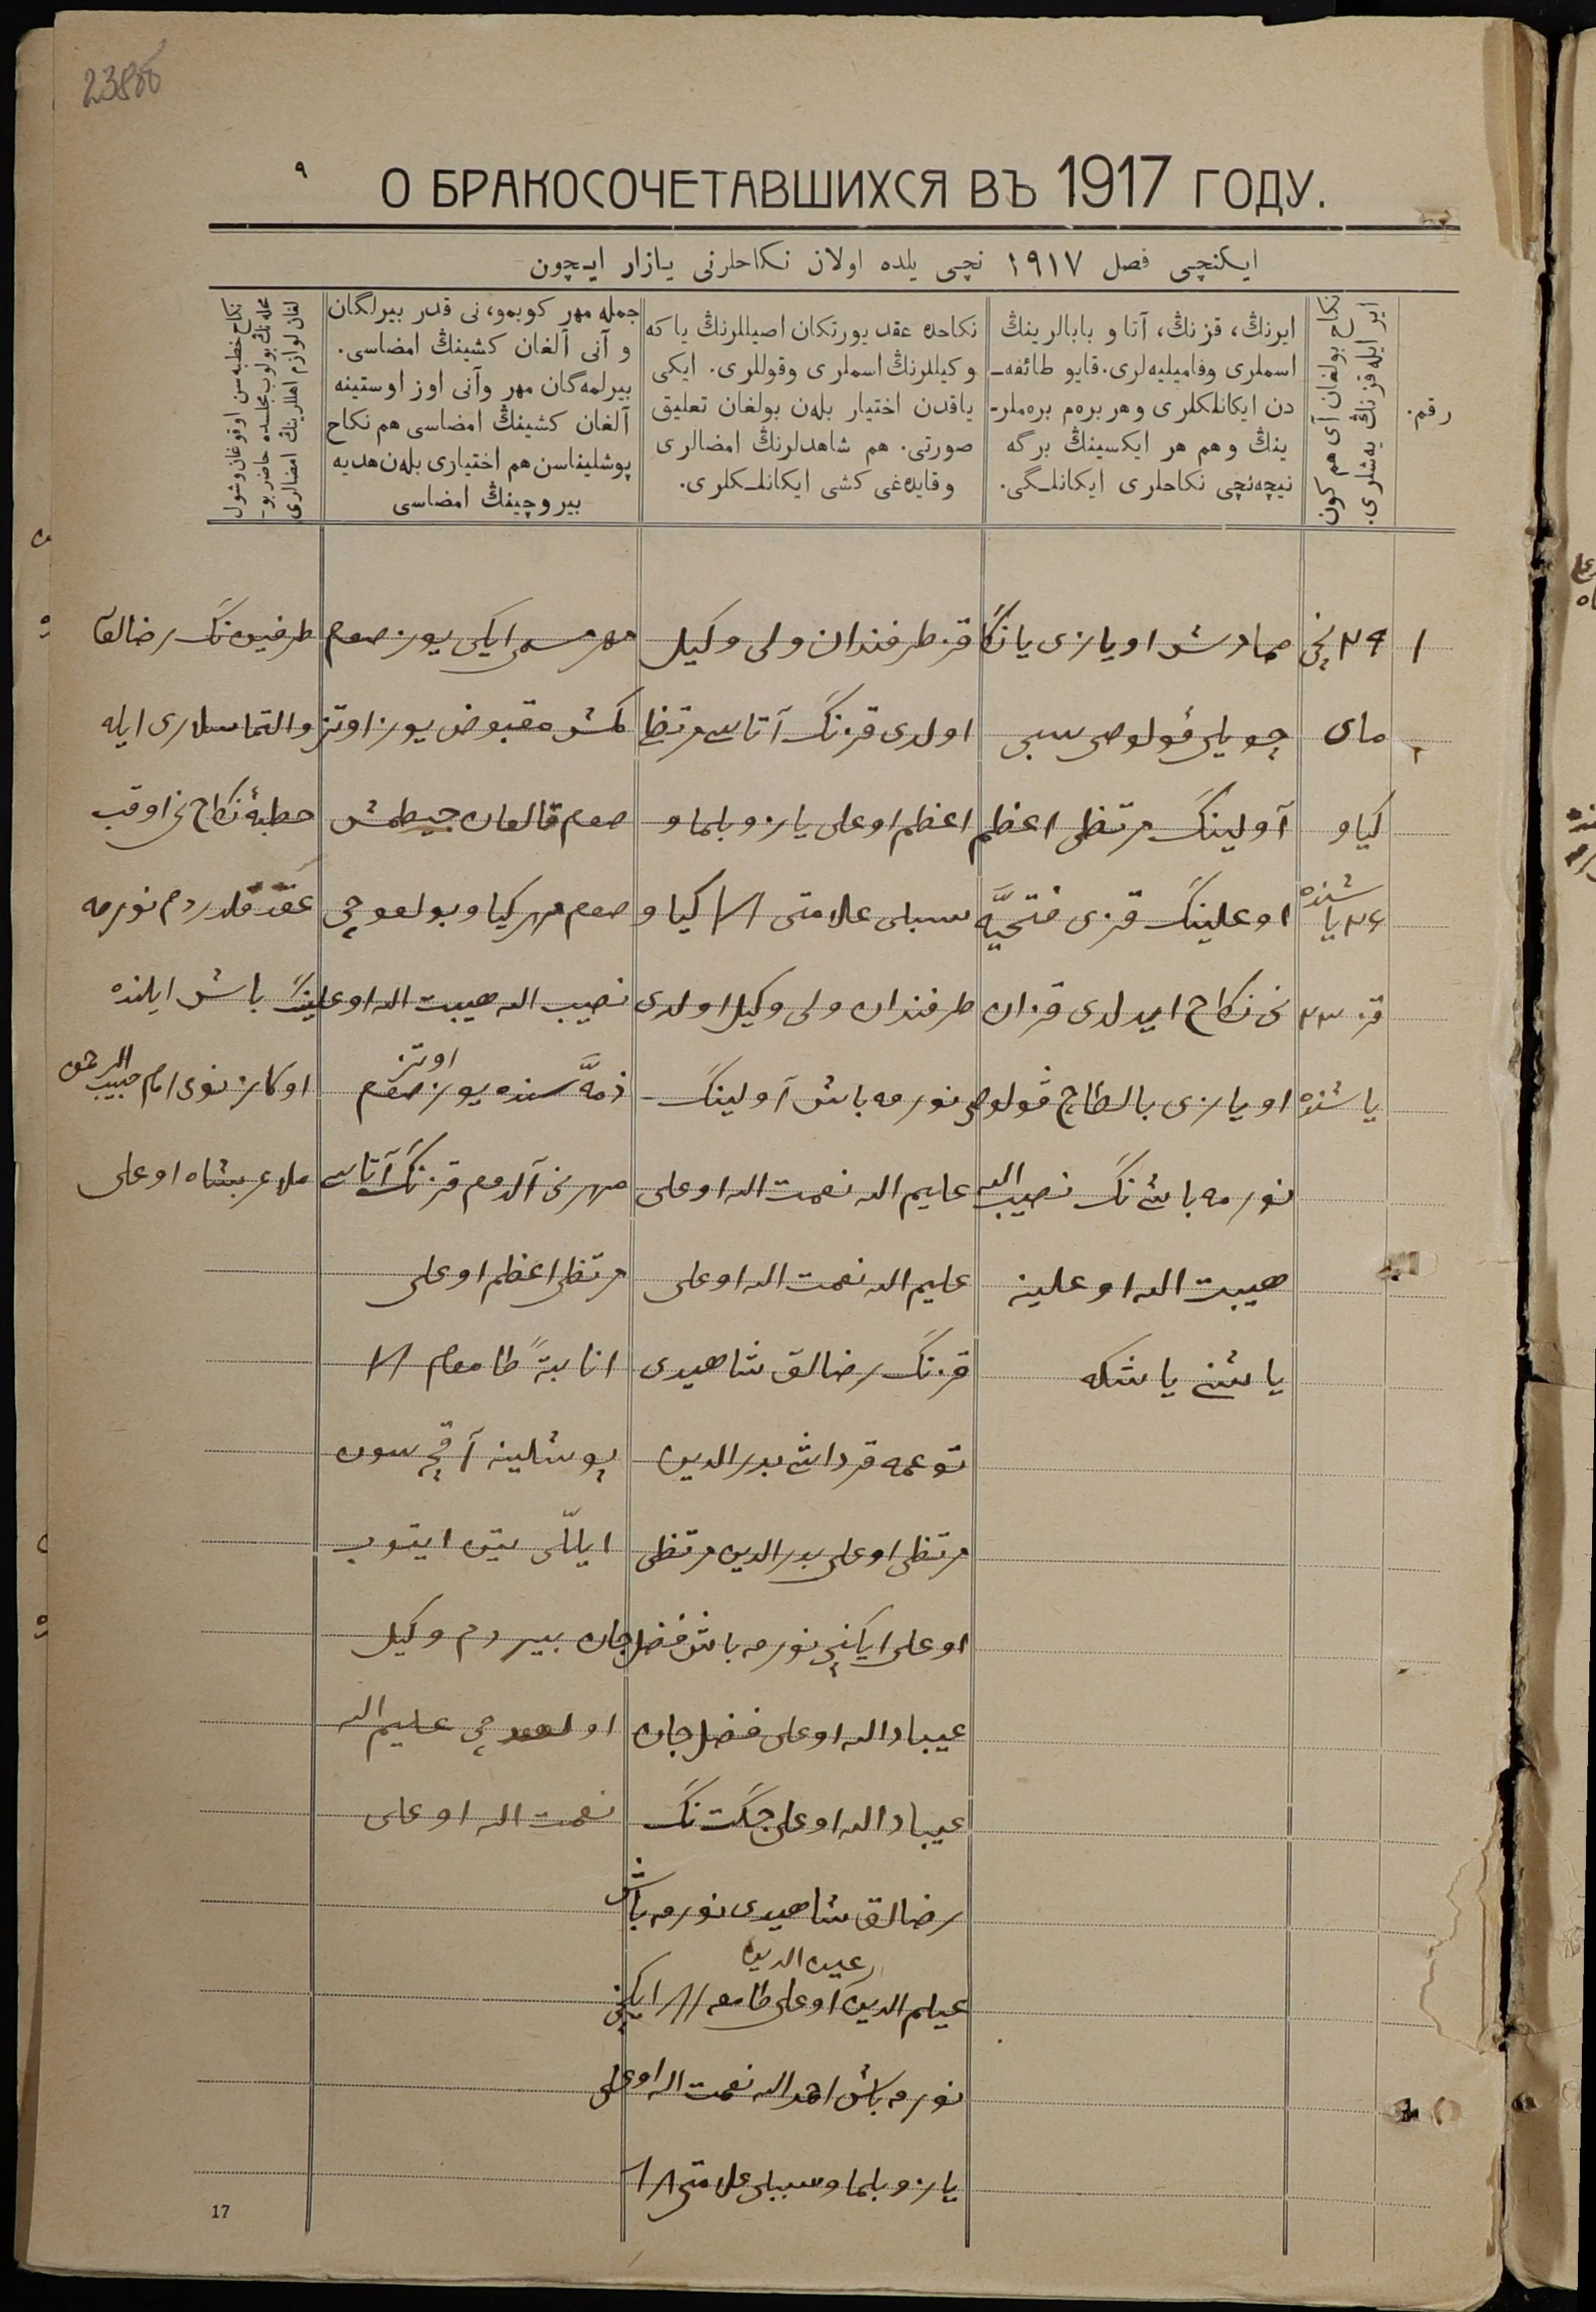 238об
٩
О БРАКОСОЧЕТАВШИХСЯ ВЪ 1917 ГОДУ.
ایکنچی فصل ۱۹۱۷ نچی یلده اولان نکاحلرنی یازار ایچون
رقم.
نکاح بولغان آی هم کون
ایر ایله قزنڭ یه‌شلری.
ایرنڭ، قزنڭ، آتا و بابالرینڭ
اسملری وفامیلیه‌لری. قایو طائفه‌ـ
دن ایکانلکلری و هر بره‌م بره‌ملر-
ینڭ و هم هر ایکسینڭ برگه
نیچه‌نچی نکاحلری ایکانلـگی.
نکاحده عقد یورتکان اصیللرنڭ یا که
وکیللرنڭ اسملری وقوللری. ایکی
یاقدن اختیار بله‌ن بولغان تعلیق
صورتی. هم شاهدلرنڭ امضالری
وقایده‌غی کشی ایکانلـکلری.
جمله مهر کوبمو، نی قدر بیرلگان
و آنی آلغان کشینڭ امضاسی.
بیرلمه‌گان مهر وآنی اوز اوستینه
آلغان کشینڭ امضاسی هم نکاح
پوشلیناسن هم اختیاری بله‌ن هدیه
بیروچینڭ امضاسی
نکاح خطبه‌سن اوقوغان وشول
محله‌نڭ بولوب مجلسده حاضر بو-
لغان لوازم اهللرینڭ امضالری
۱
۲۹ نچی
مای
کیاو
۲۶ یا
شنده
قز ۲۳
یاشنده
ممادش اویازی یانڭا
چویلی ڤولوصی سبی
آولینڭ مرتظی اعظم
اوغلینڭ قزی فتحیَّه
نی نکاح ایدلدی قزان
اویازی بالطاچ ڤولوصی
نورمه باشی نڭ نصیب الله
هیبت الله اوغلینه
یاشی یاشکه
قز طرفندان ولی وکیل
اولدی قزنڭ آتاسی مرتظا
اعظم اوغلی یازو بلماو
سبلی علامتی کیاو
طرفندان ولی وکیل اولدی
نورمه باش آولینڭ
علیم الله نعمت الله اوغلی
علیم الله نعمت الله اوغلی
قزنڭ رضالق شاهیدی
توغمه قرداشی بدرالدین
مرتظی اوغلی بدرالدین مرتظی
اوغلی ایکنچی نورمه باش فضل جان
عیبادالله اوغلی فضل جان
عیبادالله اوغلی جگت نڭ
رضالق شاهیدی نورمه باش
عین الدین
علیم الدین اوغلی طامغه ایکنچی
نورمه باش احمدالله نعمت الله اوغلی
یازو بلماو سببلی علامتی
مهر مسمی ایکی یوز صوم
کمش مقبوض یوز اوتز
صوم قالغان جیطمش
صوم مهر کیاو بولغوچی
نصیب الله هیبت الله اوغلینڭ
ذمَّه سنده یوز اوتز صوم
مهرنی آلدوم قزنڭ آتاسی
مرتظی اعظم اوغلی
طامغام
پوشلینه آقچه سون
ایللی تین ایتوب
بیردم وکیل
اولغوچی علیم الله
نعمت الله اوغلی
طرفین نڭ رضالقا
والتماسلاری ایله
خطبهٔ نکاح نی اوقب
عقد قلدردم نورمه
باش ایلنده
اوکازنوی امام حبیب الرحمن
ملا عربشاه اوغلی
17